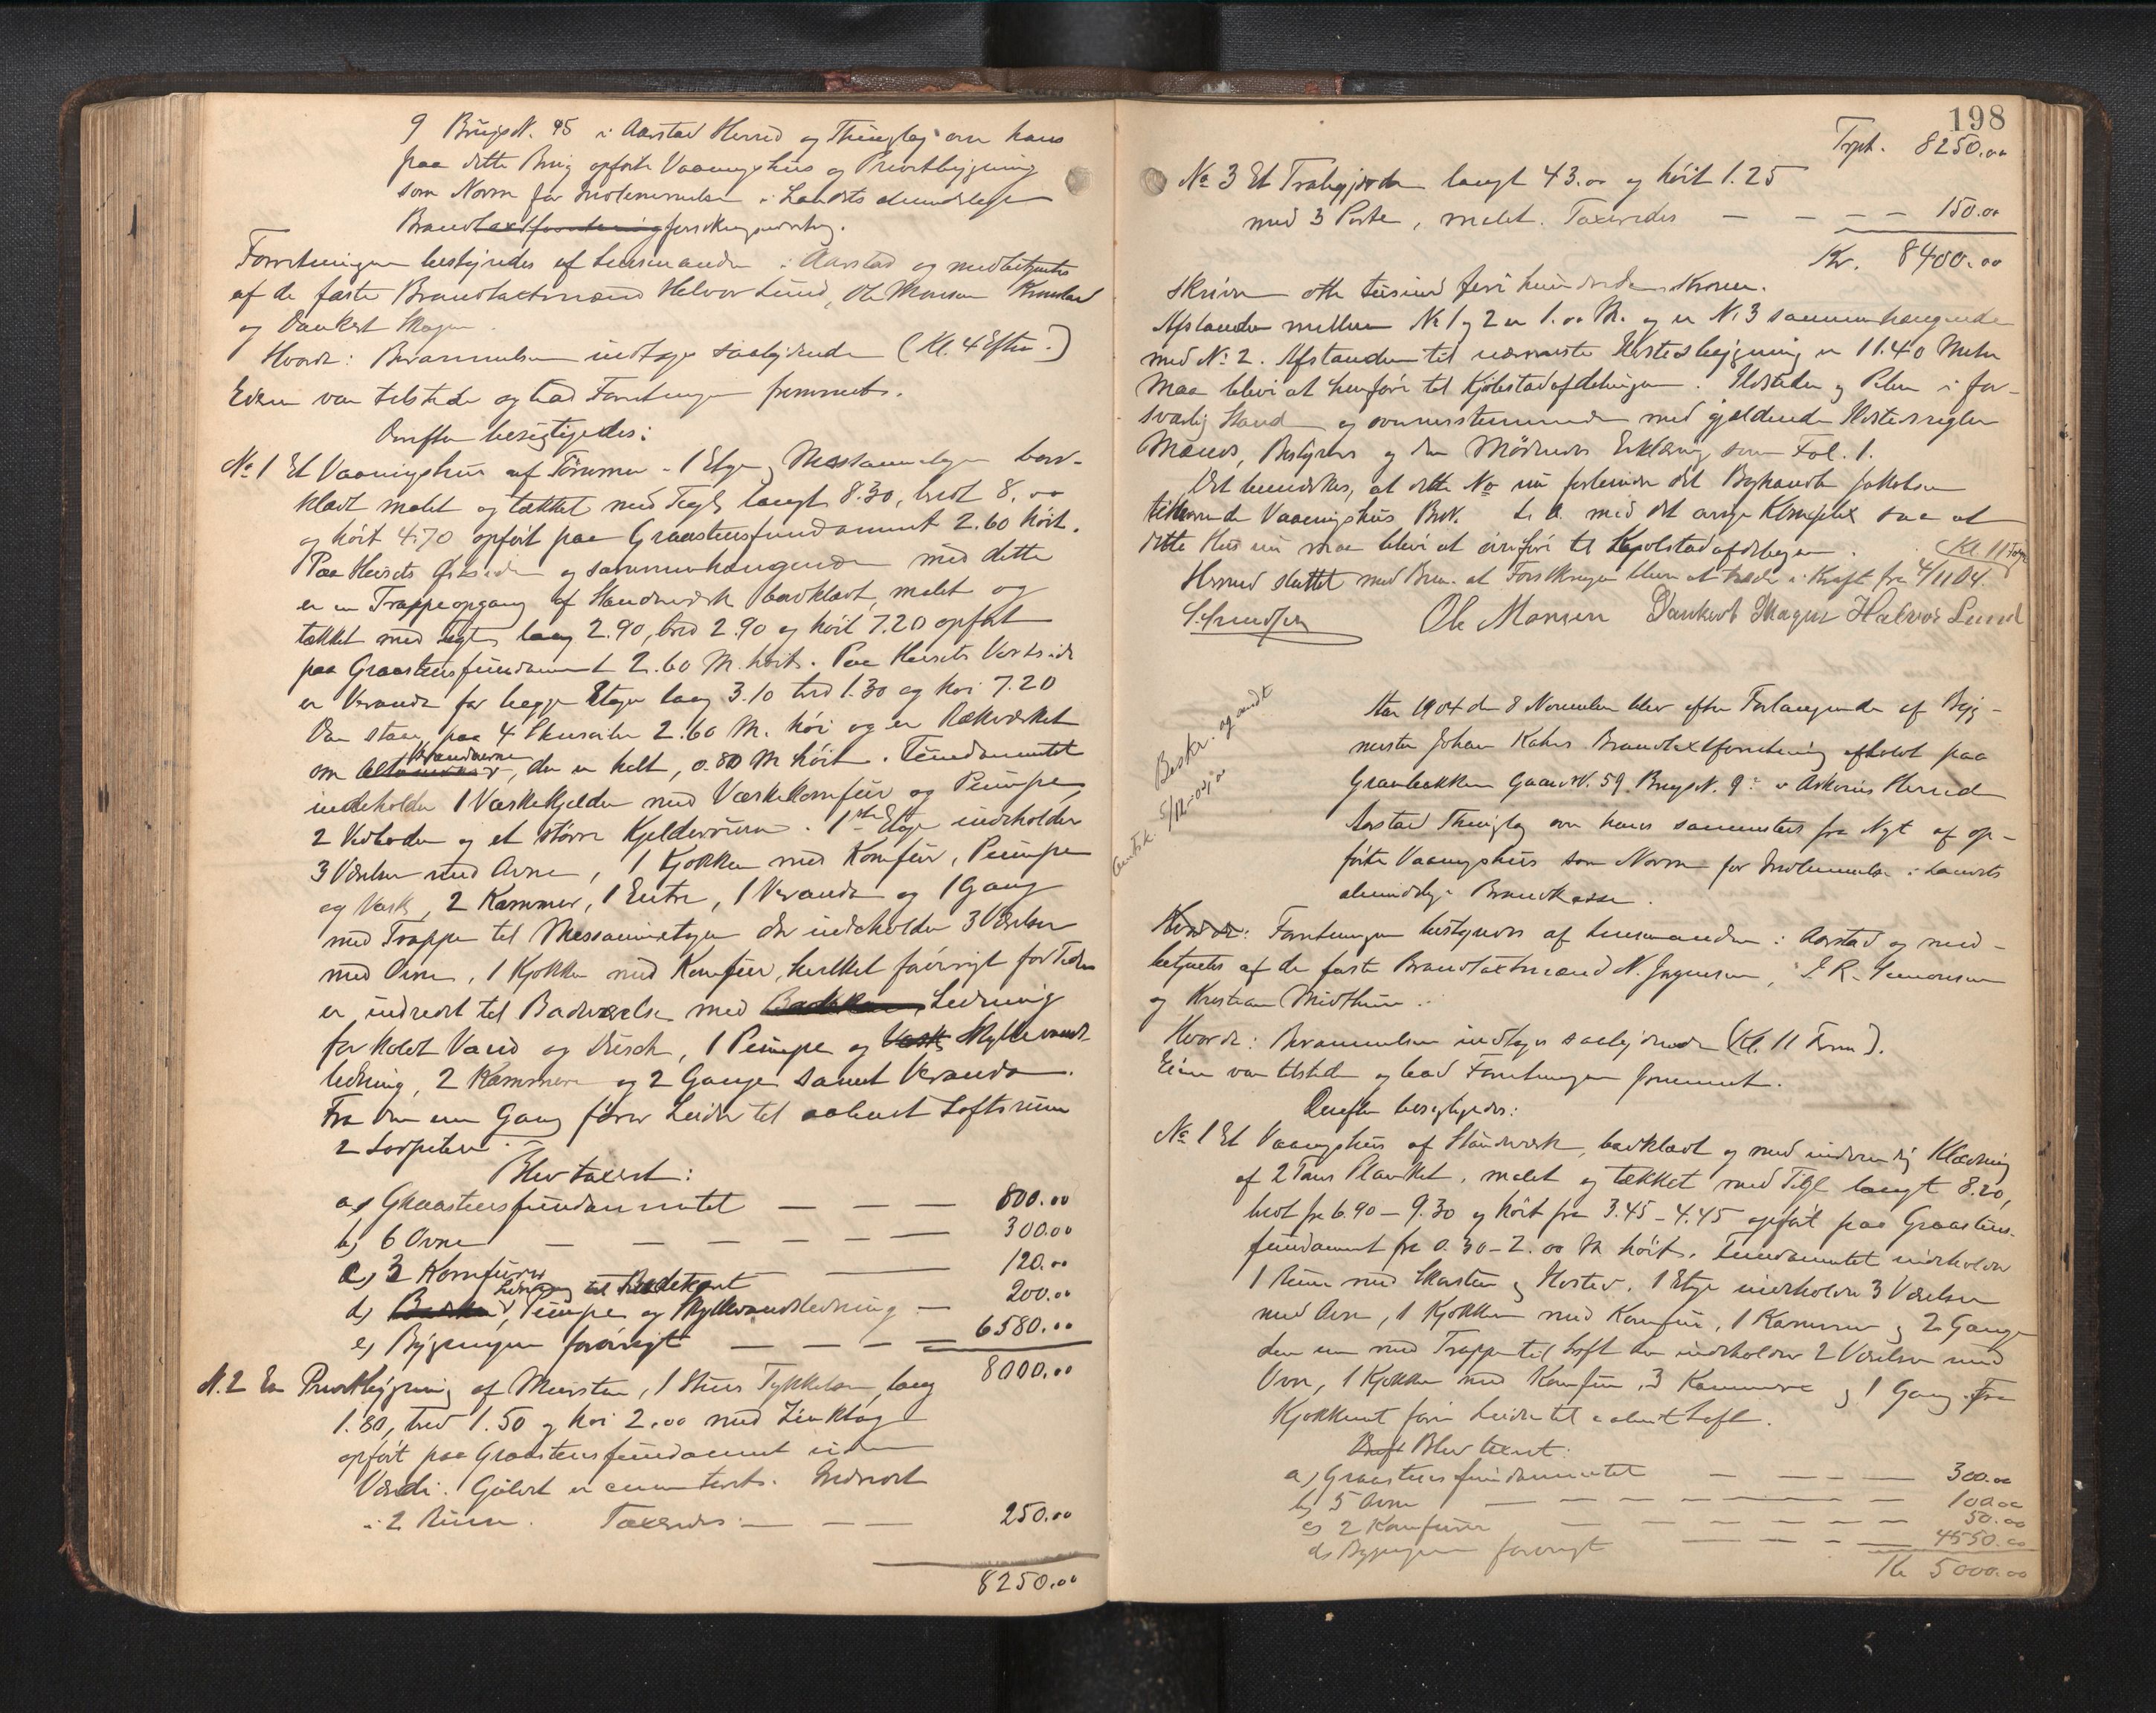 9 BrugsN. 95 i Aarstad Herred og Thinglag over hans
paa dette Brug opførte Vaaningshus og Privetbygning
som Norm for Indlemmelse i Landets almindelige
Brandforsikringsindretning.
Forretningen bestyredes af Lensmanden i Aarstad og medbetjentes
af de faste Brandtaxtmænd Halvor Lund, Ole Monsen
og Dankert Mager.
Hvorda: Berammelsen indtages saalydende (Kl. 4 Efter.)
Eieren var tilstede og bad Forretningen fremmet.
Derefter besigtigedes:
No 1 Et Vaaningshus af Tømmer 1 Etage, Messanin etagen bord-
klædt malet og tækket med Tegl, langt 8.30, bredt 8.00
og høit 4.70 opført paa Graastensfundament 2.60 høit.
Paa Husets Østside og sammenhængende med dette
er en Trappeopgang af Standværk bordklædt, malet og
tækket med tegl, lang 2.90, bred 2.90 og høit 7.20 opført
paa Graastensfundament 2.60 M. høit. Paa Husets Vestside
er Veranda for begge Etager lang 3.10 bred 1.30 og høi 7.20
Den staar paa 4 2.60 M. høi og er Rækværket
om Verandaerne, der er helt, 0.80 M høit. Fundamentet
indeholder 1 Vaskekjelder med Vaskekomfur og Pumpe,
2 Vedboder og et større Kjelderrum. 1ste Etage indeholder
3 Værelser med Ovne, 1 Kjøkken med Komfur, Pumpe
og Vask, 2 Kammer, 1 Entre, 1 Veranda og 1 Gang
med Trappe til Messaninetagen der indeholder 3 Værelser
med Ovne, 1 Kjøkken med Komfur, hvilket forøvrigt for Tiden
er indredt til Badeværelse med Ledning
for koldt Vand og Dusch, 1 Pumpe og Skyllevands-
ledning, 2 Kammere og 2 Gange samt Veranda.
Fra den ene Gang fører Leider til aabent Loftsrum
2 Lodpiber.
Blev taxeret:
a) Graastensfundamentet — — — 800.00
b) 6 Ovne — — — — — 300.00
c) 3 Komfurer — — 120.00
Ledning til Badekaret
d) Pumpe og Skyllevandsledning — 200.00
e) Bygningen forøvrigt — — — 6580.00
8000.00
N. 2 En Privetbygning af Mursten, 1 Stens Tykkelse, lang
1.80, bred 1.50 og høi 2.00 med Zinktag
opført paa Graastensfundament uden
Værdi. Gulvet er cementeret. Indredt
i 2 Rum. Taxeredes: — — — 250.00
8250.00
198
Trpt. 8250.00
No 3 Et Trægjærde langt 43.00 og høit 1.25
med 3 Porte, malet. Taxeredes — — — — 150.00
Kr. 8400.00
skriver otte tusind fire hundrede Kroner.
Afstanden mellem No 1 og 2 er 1.00 M. og er No 3 sammenhængende
med No 2. Afstanden til nærmeste Ildstedsbygning er 11.40 Meter
Maa blive at henføre til Kjøbstadafdelingen. Ildsteder og Piber i for-
svarlig Stand og overensstemmende med gjældende Ildstedsregler
Mænds, Bestyrers og den Mødendes Erklæring som Fol. 1.
Det bemærkes, at dette No nu forbinder det Jakobsen
tilhørende Vaaningshus BrN. med det øvrige Kompleks saa at
dette Hus nu maa blive at overføre til Kjøbstadafdelingen.
Kl 11 Form
Hermed sluttet med Bem. at Forsikringen bliver at træde i Kraft fra 4/11 04.
Ole Monsen Dankert Mager Halvor Lund
Beskr. og sendt
5/12-04
Aar 1904 den 8 November blev efter Forlangende af Byg-
mester Johan Kahrs Brandtaxtforretning afholdt paa
Granbakken GaardsN. 59. BrugsN. 9 i Askøens Herred
Aarstad Thinglag over hans sammesteds fra Nyt af op-
førte Vaaningshus som Norm for Indlemmelse i Landets
almindelige Brandkasse.
Hvorda: Forretningen bestyredes af Lensmanden i Aarstad og med-
betjentes af de faste Brandtaxtmænd N. E. R. Simonsen
og Kristian Midthun.
Hvorda: Berammelsen indtages saalydende (Kl. 11 Form).
Eieren var tilstede og bad Forretningen fremmet.
Derefter besigtigedes:
No 1 Et Vaaningshus af Standværk, bordklædt og med indvendig Klædning
af 2 Toms Planker, malet og tækket med Tegl langt 8.20,
bredt fra 6.90 – 9.30 og høit fra 3.45 – 4.45 opført paa Graastens-
fundament fra 0.30 – 2.00 M høit. Fundamentet indeholder
1 Rum med Skorsten og Ildsted. 1 Etage indeholder 3 Værelser
med Ovne, 1 Kjøkken med Komfur, 1 Kammer og 2 Gange
den ene med Trappe til Loft der indeholder 2 Værelser med
Ovn, 1 Kjøkken med Komfur, 3 Kammere og 1 Gang. Fra
Kjøkkenet fører Leider til aabent Loft.
Blev taxeret:
a) Graastensfundamentet — — — — 300.00
b) 5 Ovne — — — — — — — 100.00
c) 2 Komfurer — — — — — — 50.00
d) Bygningen forøvrigt — — — — 4550.00
Kr 5000.00